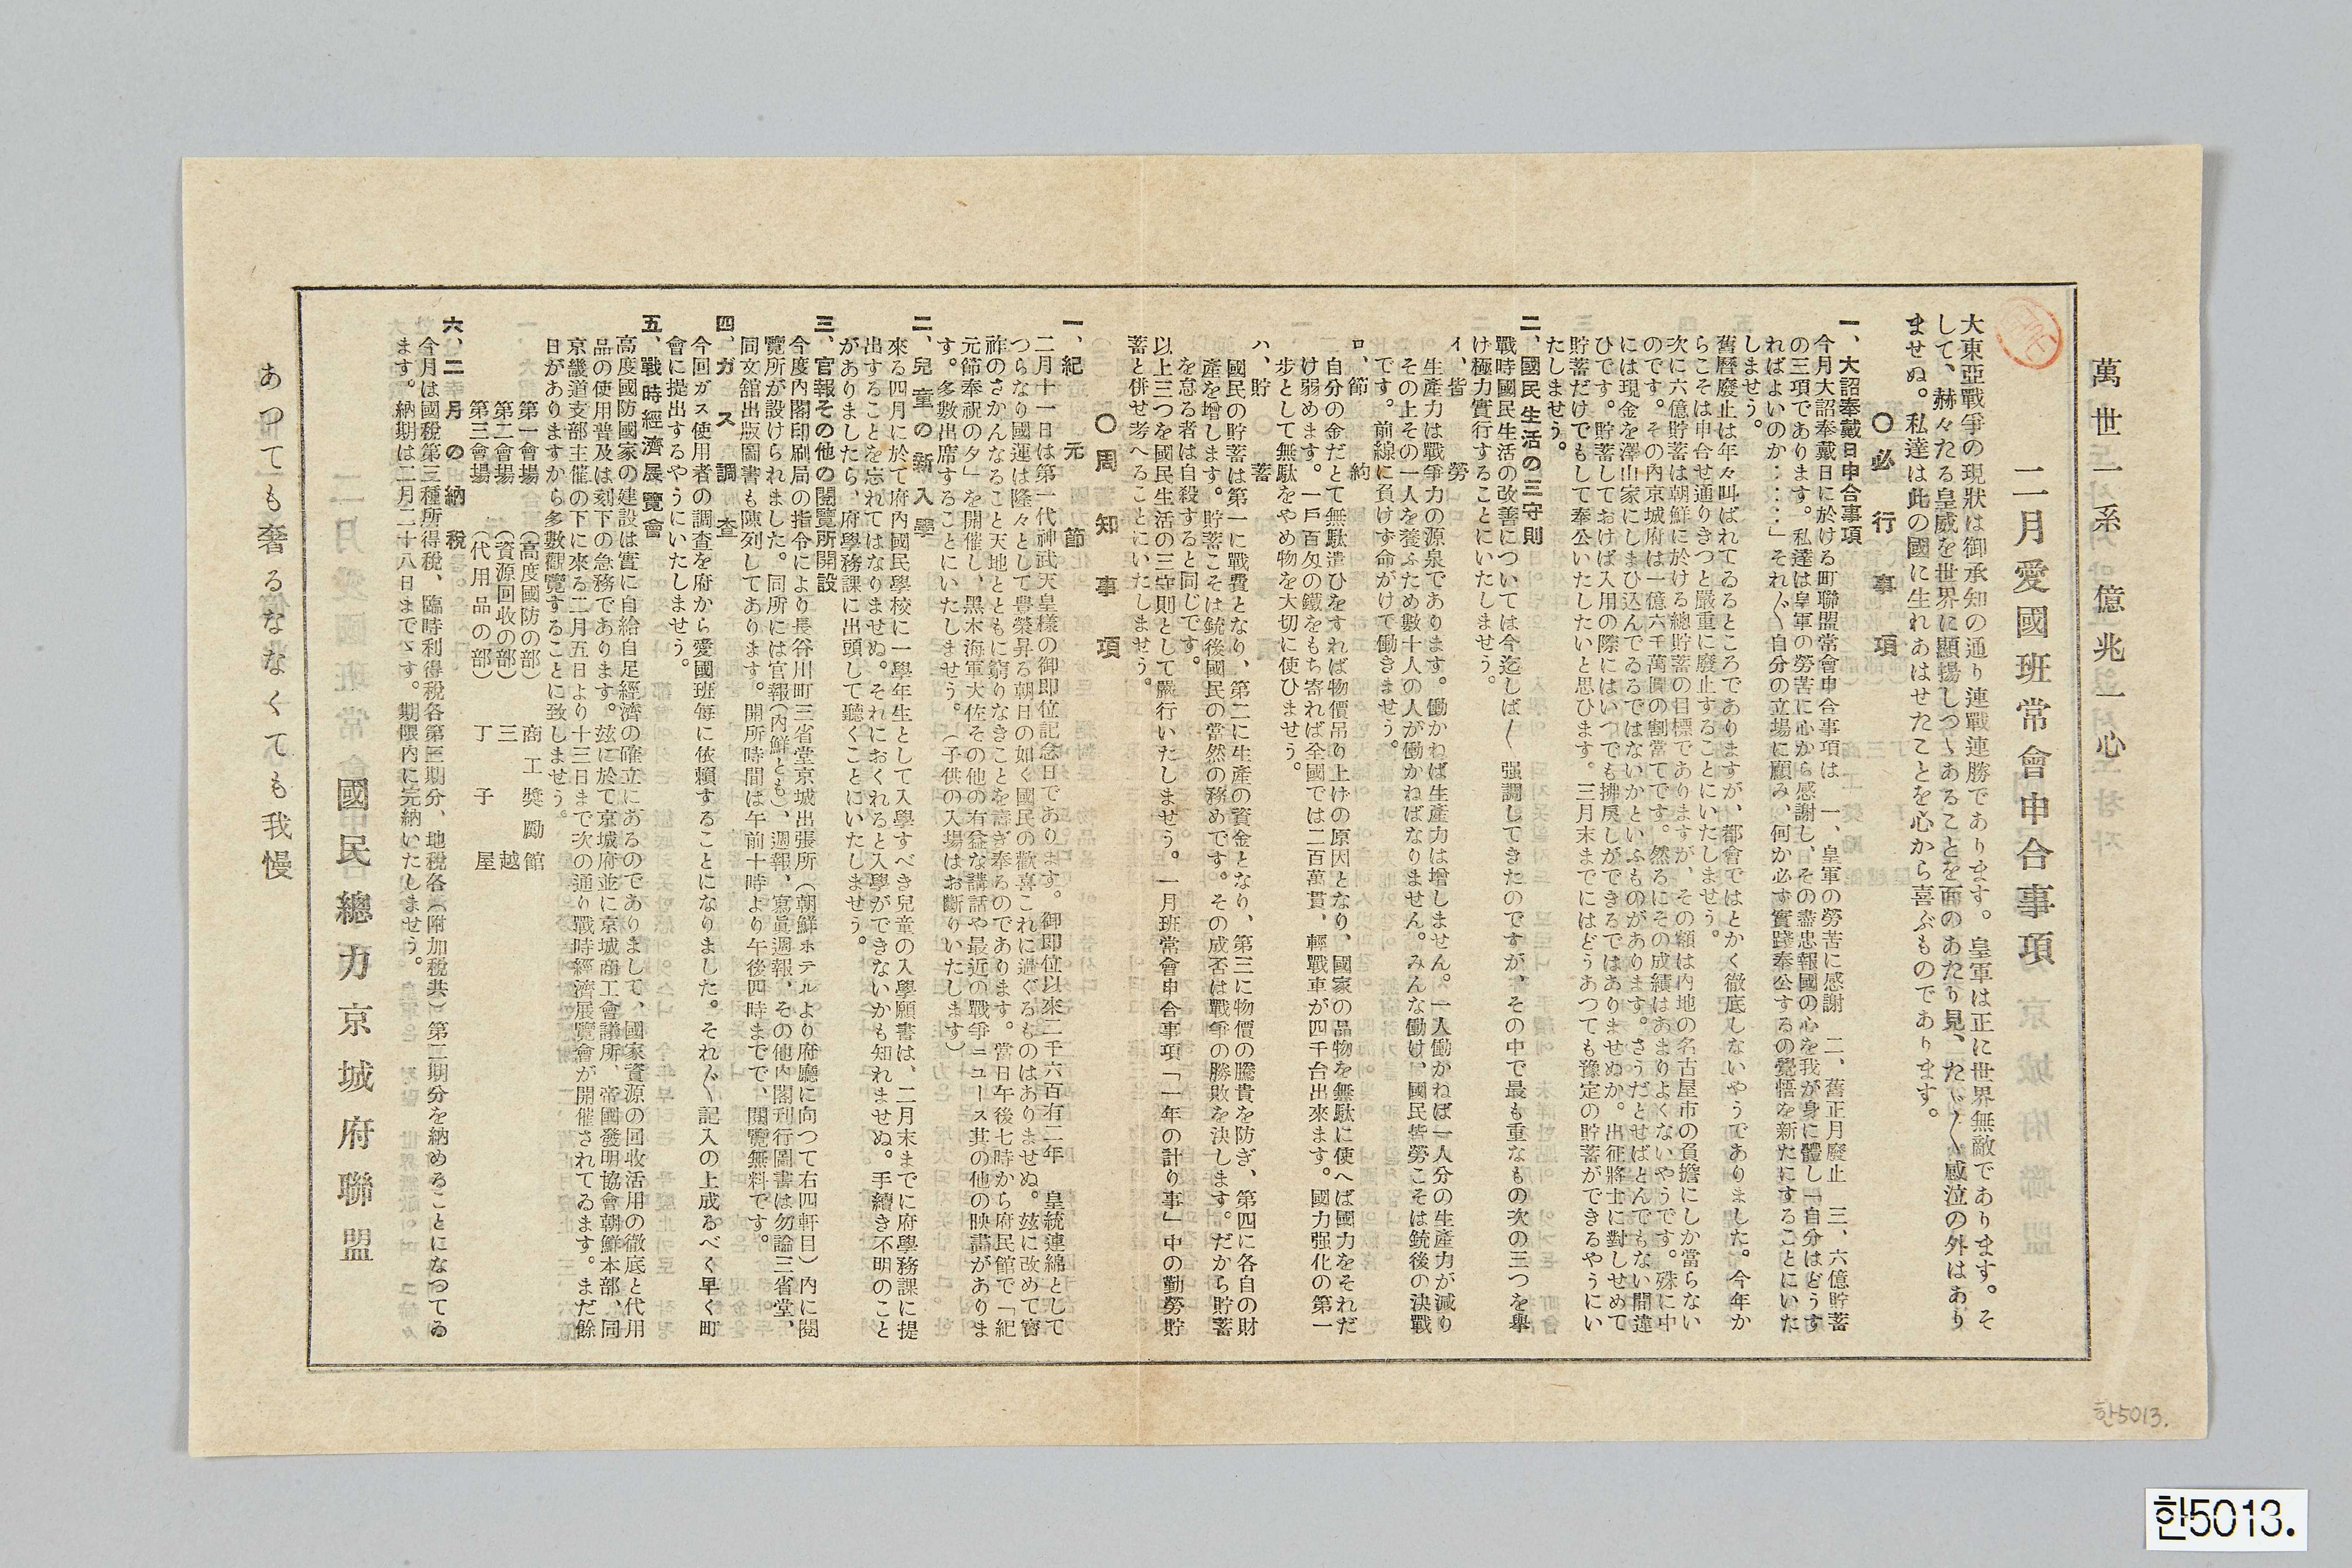 萬世一系 億兆一心
二月愛國班常會申合事項
大東亞戰爭の現狀は御承知の通り連戰連勝であります。皇軍は正に世界無敵であります。そ
して、赫々たる皇威を世界に顯揚しつゝあることを面のあたり見、たゞ〱感泣の外はあり
ませぬ。私達は此の國に生れあはせたことを心から喜ぶものであります。
〇必行事項
一、大詔奉戴日申合事項
今月大詔奉戴日に於ける町聯盟常會申合事項は 一、皇軍の勞苦に感謝 二、舊正月廢止 三、六億貯蓄
の三項であります。私達は皇軍の勞苦に心から感謝し、その盡忠報國の心を我が身に體し「自分はどうす
ればよいのか‥‥‥」それ〲自分の立場に顧み、何か必ず實踐奉公するの覺悟を新たにすることにいた
しませう。
舊曆廢止は年々叫ばれてゐるところでありますが、都會ではとかく徹底しないやうでありました。今年か
らこそは申合せ通りきつと嚴重に廢止することにいたしませう。
次に六億貯蓄は朝鮮に於ける總貯蓄の目標でありますが、その額は内地の名古屋市の負擔にしか當らない
のです。その内京城府は一億六千萬圓の割當てです。然るにその成績はあまりよくないやうです。殊に中
には現金を澤山家にしまひ込んでゐるではないかといふものがあります。さうだとせばとんでもない間違
ひです。貯蓄しておけば入用の際にはいつでも拂戾しができるではありませぬか。出征將士に對しせめて
貯蓄だけでもして奉公いたしたいと思ひます。三月末までにはどうあつても豫定の貯蓄ができるやうにい
たしませう。
二、國民生活の三守則
戰時國民生活の改善については今迄しば〱强調してきたのですが、その中で最も重なもの次の三つを擧
け極力實行することにいたしませう。
イ、皆勞
生產力は戰爭力の源泉であります。働かねば生產力は增しません。一人働かねば一人分の生產力が減り
その上その一人を養ふため數十人の人が働かねばなりません。みんな働け、國民皆勞こそは銃後の決戰
です。前線に負けず命がけで働きませう。
ロ、節約
自分の金だとて無駄遣ひをすれば物價吊り上けの原因となり、國家の品物を無駄に使へば國力をそれだ
け弱めます。一戶百匁の鐵をもち寄れば全國では二百萬貫、輕戰車が四千台出來ます。國力强化の第一
步として無駄をやめ物を大切に使ひませう。
ハ、貯蓄
國民の貯蓄は第一に戰費となり、第二に生產の資金となり、第三に物價の騰貴を防ぎ、第四に各自の財
產を增します。貯蓄こそは銃後國民の當然の務めです。その成否は戰爭の勝敗を決します。だから貯蓄
を怠る者は自殺すると同じです。
以上三つを國民生活の三守則として嚴行いたしませう。一月班常會申合事項「一年の計り事」中の勤勞貯
蓄と併せ考へることにいたしませう。
〇周知事項
一、紀元節
二月十一日は第一代神武天皇樣の御即位記念日であります。御即位以來二千六百有二年 皇統連綿として
つらなり國運は隆々として豊榮昇る朝日の如く國民の歡喜これに過ぐるものはありませぬ。玆に改めて寶
祚のさかんなること天地とともに窮りなきことを壽ぎ奉るのであります。當日午後七時から府民館で「紀
元節奉祝の夕」を開催し、黑木海軍大佐その他の有益な講話や最近の戰爭ニユース其の他の映畵がありま
す。多數出席することにいたしませう。(子供の入場はお斷りいたします)
二、兒童の新入學
來る四月に於て府內國民學校に一學年生として入學すべき兒童の入學願書は、二月末までに府學務課に提
出することを忘れてはなりませぬ。それにおくれると入學ができないかも知れませぬ。手續き不明のこと
がありましたら、府學務課に出頭して聽くことにいたしませう。
三、官報その他の閱覽所開設
今度內閣印刷局の指令により長谷川町三省堂京城出張所(朝鮮ホテルより府廳に向つて右四軒目)內に閱
覽所が設けられました。同所には官報(內鮮とも)、週報、寫眞週報、その他內閣刊行圖書は勿論三省堂、
同文舘出版圖書も陳列してあります。開所時間は午前十時より午後四時までで、閱覽無料です。
四、ガス調査
今回ガス使用者の調査を府から愛國班每に依賴することになりました。それ〲記入の上成るべく早く町
會に提出するやうにいたしませう。
五、戰時經濟展覽會
高度國防國家の建設は實に自給自足經濟の確立にあるのでありまして、國家資源の回收活用の徹底と代用
品の使用普及は刻下の急務であります。玆に於て京城府並に京城商工會議所、帝國發明協會朝鮮本部、同
京畿道支部主催の下に來る二月五日より十三日まで次の通り戰時經濟展覽會が開催されてゐます。まだ餘
日がありますから多數觀覽することに致しませう。
第一會場 (高度國防の部) 商工奬勵館
第二會場 (資源回收の部) 三越
第三會場 (代用品の部) 丁子屋
六、二月の納稅
今月は國稅第三種所得稅、臨時利得稅各第三期分、地稅各(附加稅共)第二期分を納めることになつてゐ
ます。納期は二月二十八日までゞす。期限內に完納いたしませう。
國民總力京城府聯盟
あつても奢るななくても我慢
한5013.
한5013.